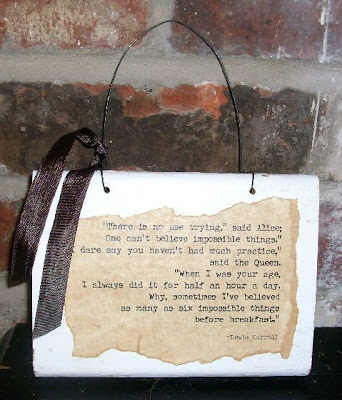 "There is no use trying," said Alice;
One can't believe impossible things."
dare say you haven't had much practice,"
said the Queen.
"When I was your age,
I always did it for half an hour a day.
Why, sometimes I've believed
as many as six impossible things
before breakfast."
~Lewis Carroll